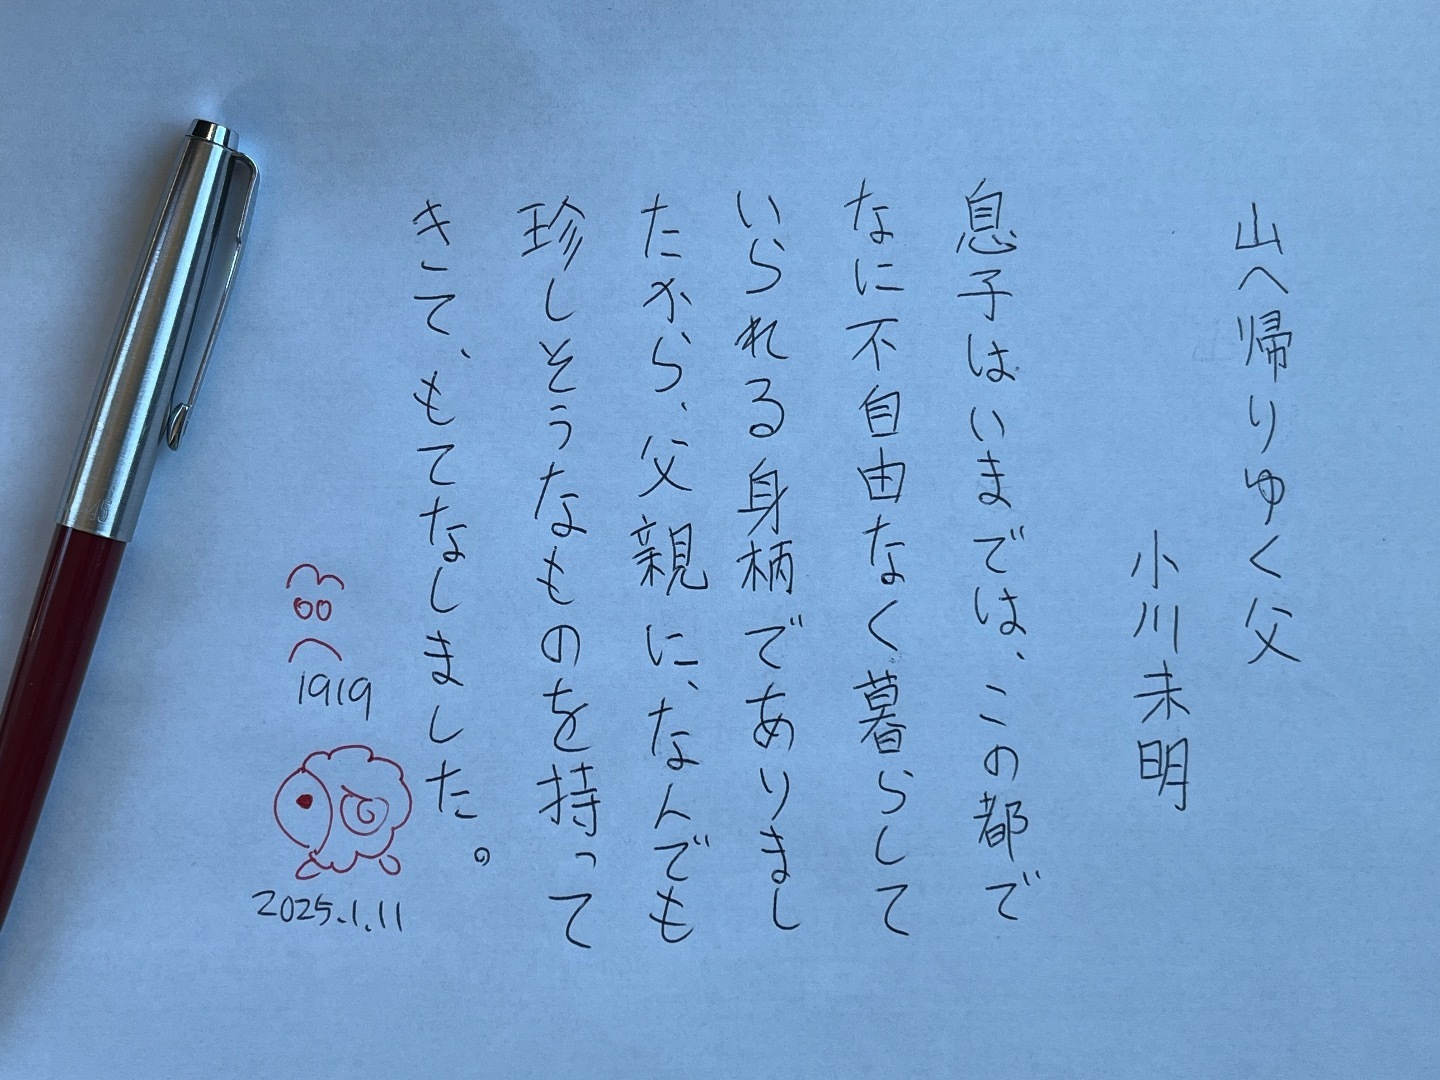 山へ帰りゆく父
小川未明
息子はいまでは、この都で
なに不自由なく暮らして
いられる身柄でありまし
たから、父親に、なんでも
珍しそうなものを持って
きて、もてなしました。
1919
2025.1.11
45